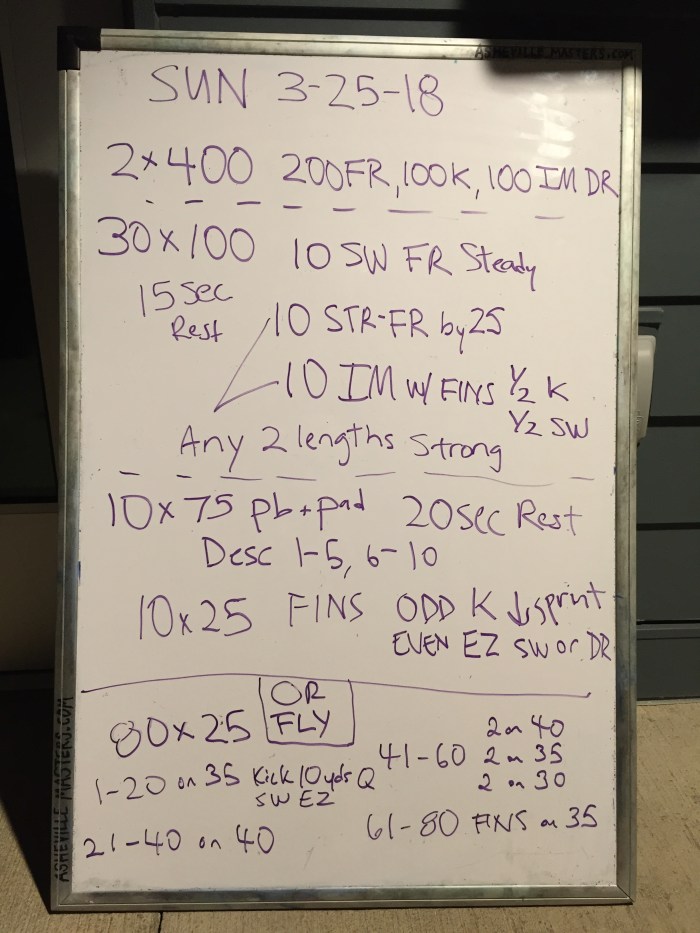 ASHEVILLE MASTERS.COM
SUN 3-25-18
2x400 200FR, 100K, 100 IM DR
30x100 10 SW FR Steady
15 sec Rest
10 STR-FR by 25
10 IM W/ FINS ½ K
½ SW
Any 2 lengths Strong
10x75 pb+pad 20 sec Rest
Desc 1-5, 6-10
10x25 FINS ODD K ↓sprint
EVEN EZ SW or DR
80x25 OR FLY
1-20 on 35 Kick 10yds Q
SW EZ
21-40 on 40
41-60 2 on 40
2 on 35
2 on 30
61-80 FINS on 35
ASHEVILLE MASTERS.COM